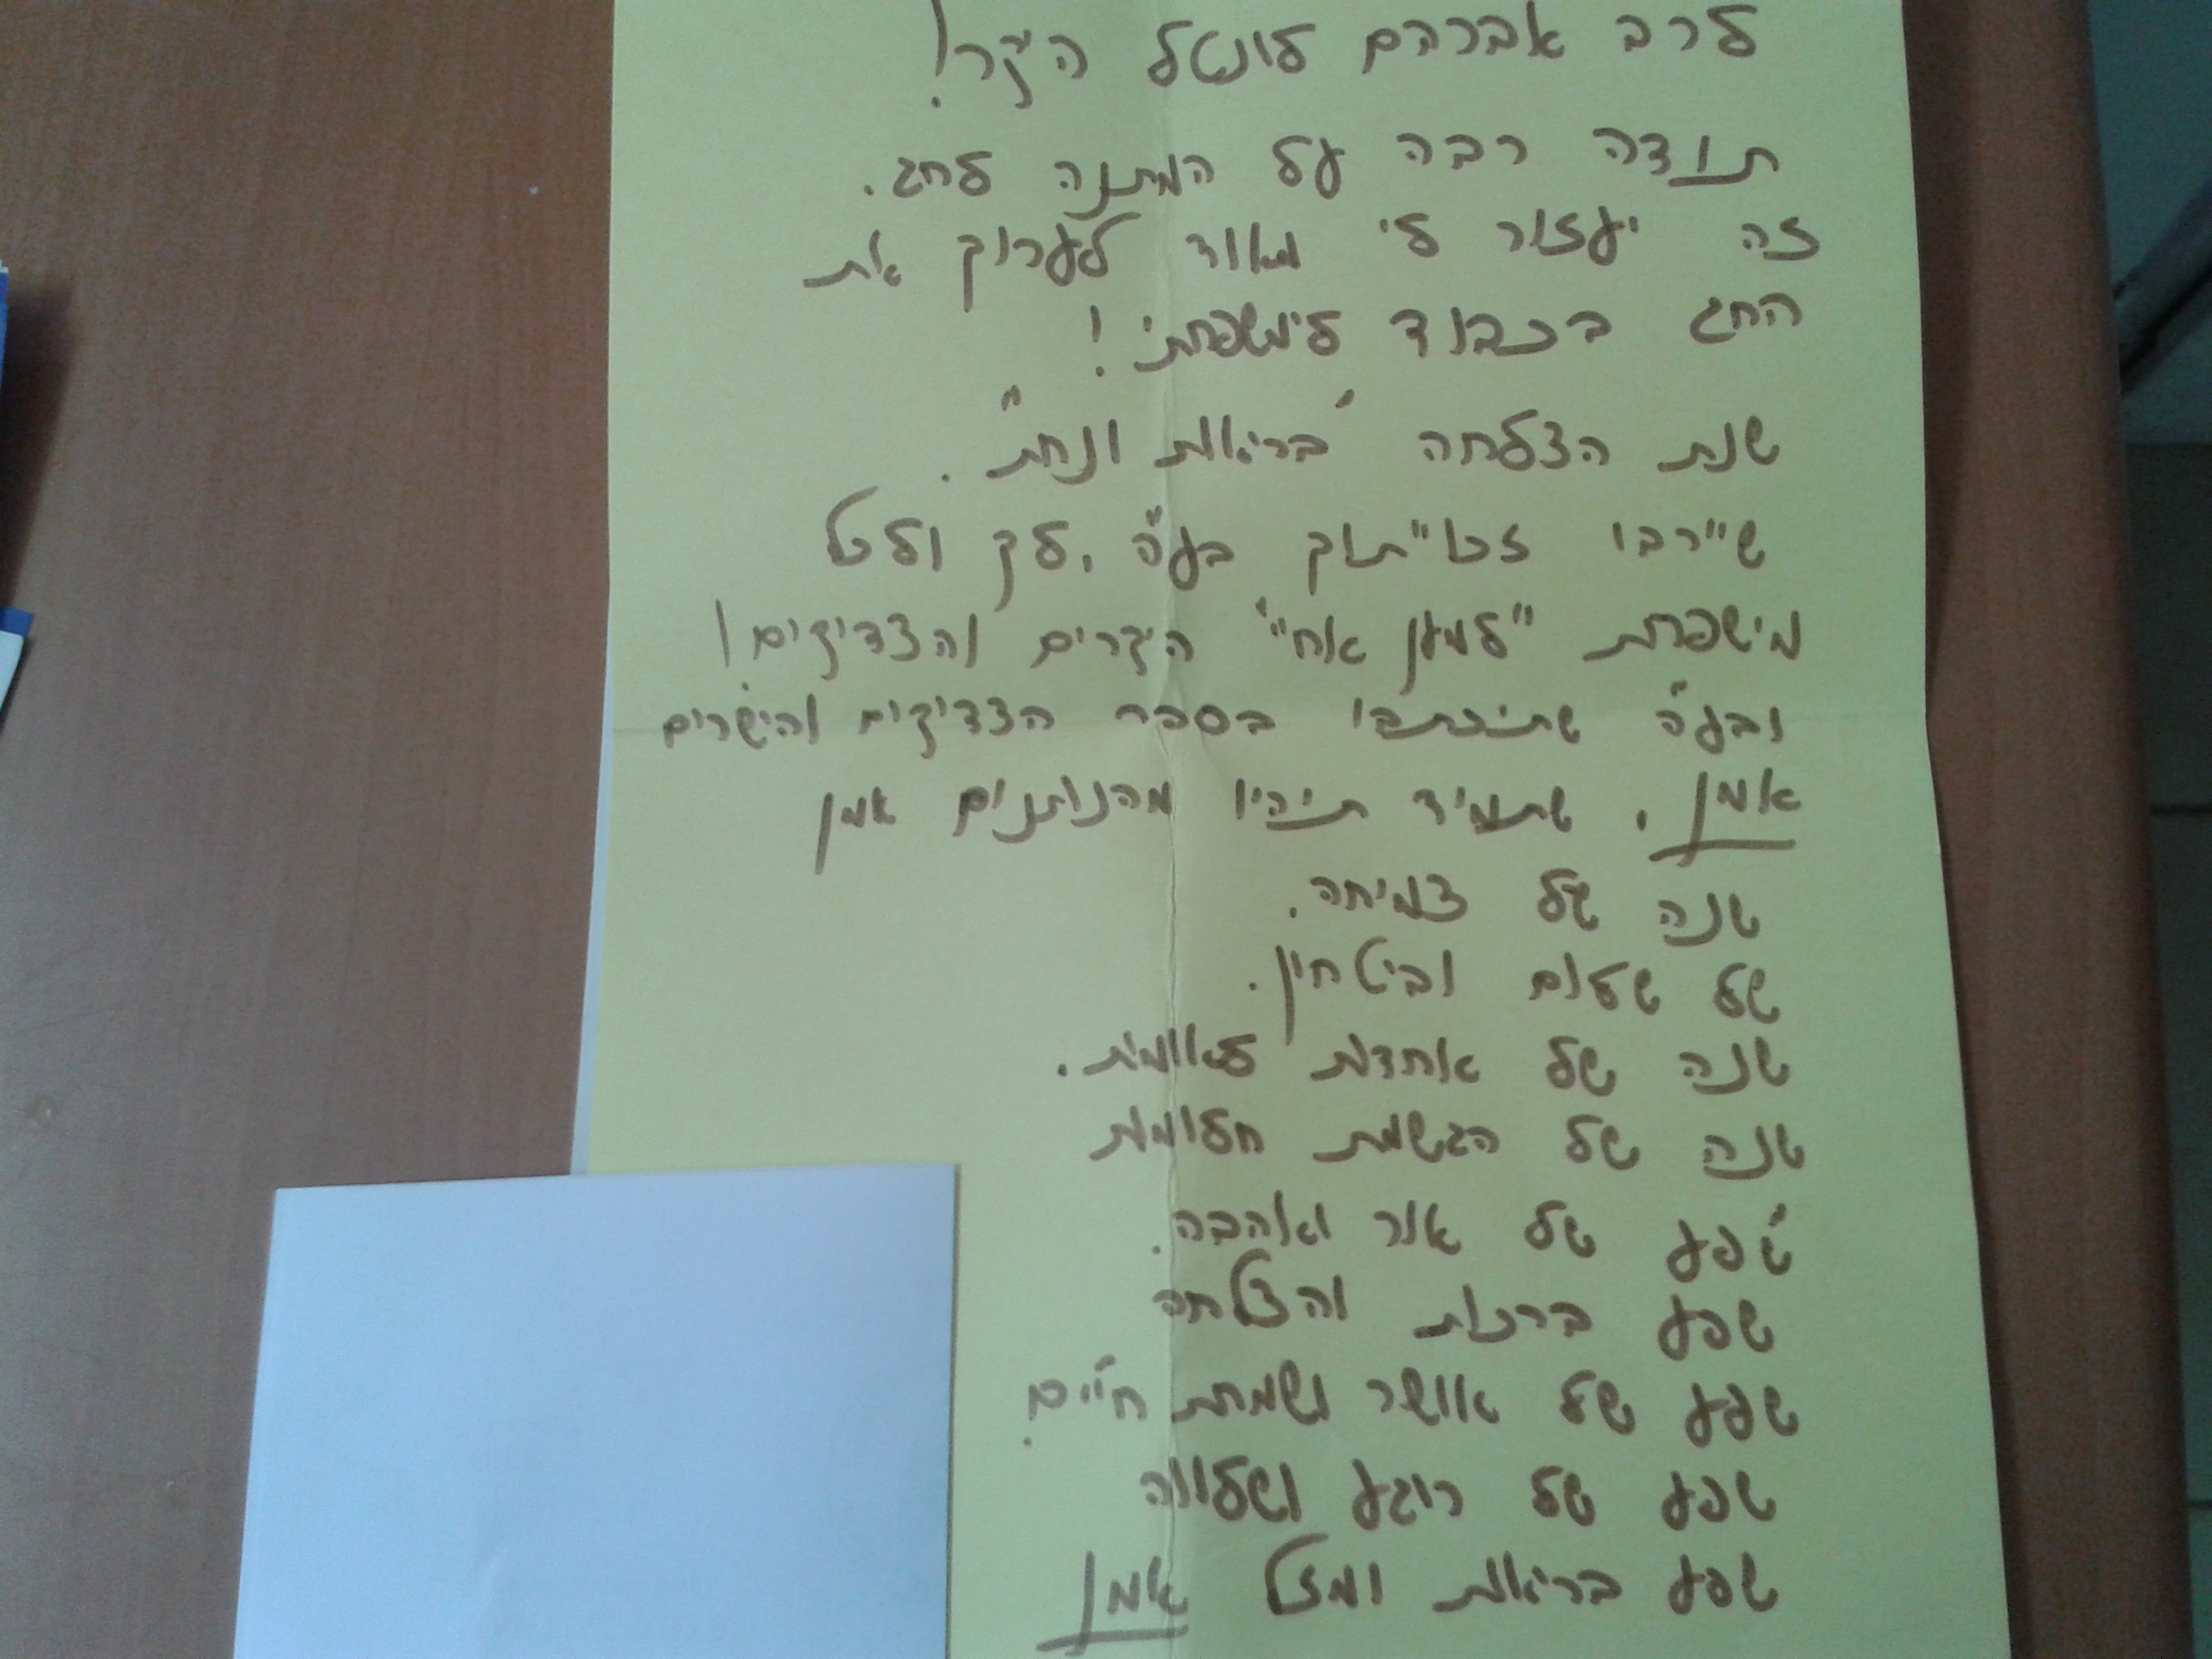 לרב אברהם לונטל היקר!
תודה רבה על המתנה לחג.
זה יעזור לי מאוד לערוך את
החג בכבוד לימשפחתי!
שנת הצלחה בריאות ונחת".
ש"רבו זכו"תוך בע"ה, לך ולכל
מישפחת "למען אחי" היקרים והצדיקים!
ובע"ה שתיכתבו בספר הצדיקים והישרים
אמן. שתמיד תיהיו מהנותנים אמן
שנה של צמיחה.
של שלום וביטחון.
שנה של אחדות לאומית.
שנה של הגשמת חלומות
שפע של אור ואהבה.
שפע ברכות והצלחה
שפע של אושר ושמחת חיים.
שפע של רוגע ושלווה
שפע בריאות ומזל אמן